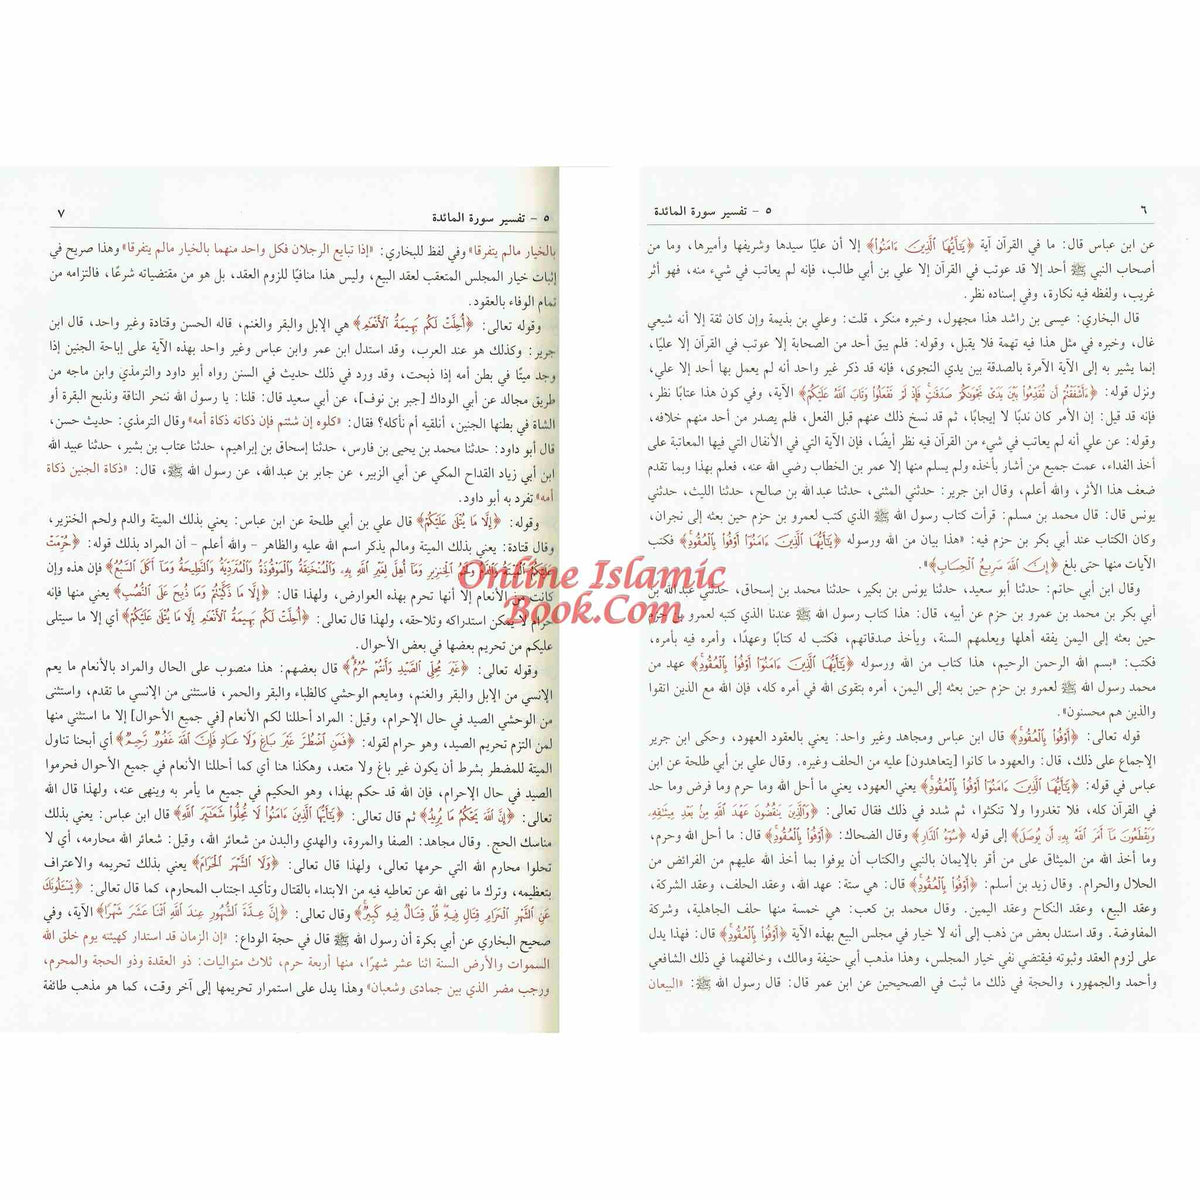 ٥ - تفسير سورة المائدة ٦
عن ابن عباس قال: ما في القرآن آية ﴿يَٰٓأَيُّهَا ٱلَّذِينَ ءَامَنُوٓا۟﴾ إلا أن عليًا سيدها وشريفها وأميرها، وما من
أصحاب النبي ﷺ أحد إلا قد عوتب في القرآن إلا علي بن أبي طالب، فإنه لم يعاتب في شيء منه، فهو أثر
غريب، ولفظه فيه نكارة، وفي إسناده نظر.
قال البخاري: عيسى بن راشد هذا مجهول، وخبره منكر، قلت: وعلي بن بذيمة وإن كان ثقة إلا أنه شيعي
غال، وخبره في مثل هذا فيه تهمة فلا يقبل، وقوله: فلم يبق أحد من الصحابة إلا عوتب في القرآن إلا عليًا،
إنما يشير به إلى الآية الآمرة بالصدقة بين يدي النجوى، فإنه قد ذكر غير واحد أنه لم يعمل بها أحد إلا علي،
ونزل قوله: ﴿ءَأَشْفَقْتُمْ أَن تُقَدِّمُوا۟ بَيْنَ يَدَىْ نَجْوَىٰكُمْ صَدَقَٰتٍ فَإِذْ لَمْ تَفْعَلُوا۟ وَتَابَ ٱللَّهُ عَلَيْكُمْ﴾ الآية، وفي كون هذا عتابًا نظر،
فإنه قد قيل: إن الأمر كان ندبًا لا إيجابًا، ثم قد نسخ ذلك عنهم قبل الفعل، فلم يصدر من أحد منهم خلافه،
وقوله: عن علي أنه لم يعاتب في شيء من القرآن فيه نظر أيضًا، فإن الآية التي في الأنفال التي فيها المعاتبة على
أخذ الفداء، عمت جميع من أشار بأخذه ولم يسلم منها إلا عمر بن الخطاب رضي الله عنه، فعلم بهذا وبما تقدم
ضعف هذا الأثر، والله أعلم، وقال ابن جرير: حدثني المثنى، حدثنا عبدالله بن صالح، حدثنا الليث، حدثني
يونس قال: قال محمد بن مسلم: قرأت كتاب رسول الله ﷺ الذي كتب لعمرو بن حزم حين بعثه إلى نجران،
وكان الكتاب عند أبي بكر بن حزم فيه: «هذا بيان من الله ورسوله ﴿يَٰٓأَيُّهَا ٱلَّذِينَ ءَامَنُوٓا۟ أَوْفُوا۟ بِٱلْعُقُودِ﴾ فكتب
الآيات منها حتى بلغ ﴿إِنَّ ٱللَّهَ سَرِيعُ ٱلْحِسَابِ﴾».
وقال ابن أبي حاتم: حدثنا أبو سعيد، حدثنا يونس بن بكير، حدثنا محمد بن إسحاق، حدثني عبدالله بن
أبي بكر بن محمد بن عمرو بن حزم عن أبيه، قال: هذا كتاب رسول الله ﷺ عندنا الذي كتبه لعمرو بن حزم
حين بعثه إلى اليمن يفقه أهلها ويعلمهم السنة، ويأخذ صدقاتهم، فكتب له كتابًا وعهدًا، وأمره فيه بأمره،
فكتب: «بسم الله الرحمن الرحيم، هذا كتاب من الله ورسوله ﴿يَٰٓأَيُّهَا ٱلَّذِينَ ءَامَنُوٓا۟ أَوْفُوا۟ بِٱلْعُقُودِ﴾ عهد من
محمد رسول الله ﷺ لعمرو بن حزم حين بعثه إلى اليمن، أمره بتقوى الله في أمره كله، فإن الله مع الذين اتقوا
والذين هم محسنون».
قوله تعالى: ﴿أَوْفُوا۟ بِٱلْعُقُودِ﴾ قال ابن عباس ومجاهد وغير واحد: يعني بالعقود العهود، وحكى ابن جرير
الإجماع على ذلك، قال: والعهود ما كانوا [يتعاهدون] عليه من الحلف وغيره. وقال علي بن أبي طلحة عن ابن
عباس في قوله: ﴿يَٰٓأَيُّهَا ٱلَّذِينَ ءَامَنُوٓا۟ أَوْفُوا۟ بِٱلْعُقُودِ﴾ يعني العهود، يعني ما أحل الله وما حرم وما فرض وما حد
في القرآن كله، فلا تغدروا ولا تنكثوا، ثم شدد في ذلك فقال تعالى: ﴿وَٱلَّذِينَ يَنقُضُونَ عَهْدَ ٱللَّهِ مِنۢ بَعْدِ مِيثَٰقِهِۦ
وَيَقْطَعُونَ مَآ أَمَرَ ٱللَّهُ بِهِۦٓ أَن يُوصَلَ﴾ إلى قوله ﴿سُوٓءُ ٱلدَّارِ﴾ وقال الضحاك: ﴿أَوْفُوا۟ بِٱلْعُقُودِ﴾ قال: ما أحل الله وحرم،
وما أخذ الله من الميثاق على من أقر بالإيمان بالنبي والكتاب أن يوفوا بما أخذ الله عليهم من الفرائض من
الحلال والحرام. وقال زيد بن أسلم: ﴿أَوْفُوا۟ بِٱلْعُقُودِ﴾ قال: هي ستة: عهد الله، وعقد الحلف، وعقد الشركة،
وعقد البيع، وعقد النكاح وعقد اليمين. وقال محمد بن كعب: هي خمسة منها حلف الجاهلية، وشركة
المفاوضة. وقد استدل بعض من ذهب إلى أنه لا خيار في مجلس البيع بهذه الآية ﴿أَوْفُوا۟ بِٱلْعُقُودِ﴾ قال: فهذا يدل
على لزوم العقد وثبوته فيقتضي نفي خيار المجلس، وهذا مذهب أبي حنيفة ومالك، وخالفهما في ذلك الشافعي
وأحمد والجمهور، والحجة في ذلك ما ثبت في الصحيحين عن ابن عمر قال: قال رسول الله ﷺ: «البيعان
٥ - تفسير سورة المائدة ٧
بالخيار مالم يتفرقا» وفي لفظ للبخاري: «إذا تبايع الرجلان فكل واحد منهما بالخيار مالم يتفرقا» وهذا صريح في
إثبات خيار المجلس المتعقب لعقد البيع، وليس هذا منافيًا للزوم العقد، بل هو من مقتضياته شرعًا، فالتزامه من
تمام الوفاء بالعقود.
وقوله تعالى: ﴿أُحِلَّتْ لَكُم بَهِيمَةُ ٱلْأَنْعَٰمِ﴾ هي الإبل والبقر والغنم، قاله الحسن وقتادة وغير واحد، قال ابن
جرير: وكذلك هو عند العرب، وقد استدل ابن عمر وابن عباس وغير واحد بهذه الآية على إباحة الجنين إذا
وجد ميتًا في بطن أمه إذا ذبحت، وقد ورد في ذلك حديث في السنن رواه أبو داود والترمذي وابن ماجه من
طريق مجالد عن أبي الوداك [جبر بن نوف]، عن أبي سعيد قال: قلنا: يا رسول الله ننحر الناقة ونذبح البقرة أو
الشاة في بطنها الجنين، أنلقيه أم نأكله؟ فقال: «كلوه إن شئتم فإن ذكاته ذكاة أمه» وقال الترمذي: حديث حسن،
قال أبو داود: حدثنا محمد بن يحيى بن فارس، حدثنا إسحاق بن إبراهيم، حدثنا عتاب بن بشير، حدثنا عبيد الله
ابن أبي زياد القداح المكي عن أبي الزبير، عن جابر بن عبدالله، عن رسول الله ﷺ، قال: «ذكاة الجنين ذكاة
أمه» تفرد به أبو داود.
وقوله: ﴿إِلَّا مَا يُتْلَىٰ عَلَيْكُمْ﴾ قال علي بن أبي طلحة عن ابن عباس: يعني بذلك الميتة والدم ولحم الخنزير،
وقال قتادة: يعني بذلك الميتة ومالم يذكر اسم الله عليه والظاهر - والله أعلم - أن المراد بذلك قوله: ﴿حُرِّمَتْ
عَلَيْكُمُ ٱلْمَيْتَةُ وَٱلدَّمُ وَلَحْمُ ٱلْخِنزِيرِ وَمَآ أُهِلَّ لِغَيْرِ ٱللَّهِ بِهِۦ وَٱلْمُنْخَنِقَةُ وَٱلْمَوْقُوذَةُ وَٱلْمُتَرَدِّيَةُ وَٱلنَّطِيحَةُ وَمَآ أَكَلَ ٱلسَّبُعُ﴾ فإن هذه وإن
كانت من الأنعام إلا أنها تحرم بهذه العوارض، ولهذا قال: ﴿إِلَّا مَا ذَكَّيْتُمْ وَمَا ذُبِحَ عَلَى ٱلنُّصُبِ﴾ يعني منها فإنه
حرام لا يمكن استدراكه وتلاحقه، ولهذا قال تعالى: ﴿أُحِلَّتْ لَكُم بَهِيمَةُ ٱلْأَنْعَٰمِ إِلَّا مَا يُتْلَىٰ عَلَيْكُمْ﴾ أي إلا ما سيتلى
عليكم من تحريم بعضها في بعض الأحوال.
وقوله تعالى: ﴿غَيْرَ مُحِلِّى ٱلصَّيْدِ وَأَنتُمْ حُرُمٌ﴾ قال بعضهم: هذا منصوب على الحال والمراد بالأنعام ما يعم
الإنسي من الإبل والبقر والغنم، ومايعم الوحشي كالظباء والبقر والحمر، فاستثنى من الإنسي ما تقدم، واستثنى
من الوحشي الصيد في حال الإحرام، وقيل: المراد أحللنا لكم الأنعام [في جميع الأحوال] إلا ما استثني منها
لمن التزم تحريم الصيد، وهو حرام لقوله: ﴿فَمَنِ ٱضْطُرَّ غَيْرَ بَاغٍ وَلَا عَادٍ فَإِنَّ ٱللَّهَ غَفُورٌ رَّحِيمٌ﴾ أي أبحنا تناول
الميتة للمضطر بشرط أن يكون غير باغ ولا متعد، وهكذا هنا أي كما أحللنا الأنعام في جميع الأحوال فحرموا
الصيد في حال الإحرام، فإن الله قد حكم بهذا، وهو الحكيم في جميع ما يأمر به وينهى عنه، ولهذا قال الله
تعالى: ﴿إِنَّ ٱللَّهَ يَحْكُمُ مَا يُرِيدُ﴾ ثم قال تعالى: ﴿يَٰٓأَيُّهَا ٱلَّذِينَ ءَامَنُوا۟ لَا تُحِلُّوا۟ شَعَٰٓئِرَ ٱللَّهِ﴾ قال ابن عباس: يعني بذلك
مناسك الحج. وقال مجاهد: الصفا والمروة، والهدي والبدن من شعائر الله، وقيل: شعائر الله محارمه، أي لا
تحلوا محارم الله التي حرمها تعالى، ولهذا قال تعالى: ﴿وَلَا ٱلشَّهْرَ ٱلْحَرَامَ﴾ يعني بذلك تحريمه والاعتراف
بتعظيمه، وترك ما نهى الله عن تعاطيه فيه من الابتداء بالقتال وتأكيد اجتناب المحارم، كما قال تعالى: ﴿يَسْـَٔلُونَكَ
عَنِ ٱلشَّهْرِ ٱلْحَرَامِ قِتَالٍ فِيهِ قُلْ قِتَالٌ فِيهِ كَبِيرٌ﴾ وقال تعالى: ﴿إِنَّ عِدَّةَ ٱلشُّهُورِ عِندَ ٱللَّهِ ٱثْنَا عَشَرَ شَهْرًا﴾ الآية، وفي
صحيح البخاري عن أبي بكرة أن رسول الله ﷺ قال في حجة الوداع: «إن الزمان قد استدار كهيئته يوم خلق الله
السموات والأرض السنة اثنا عشر شهرًا، منها أربعة حرم، ثلاث متواليات: ذو القعدة وذو الحجة والمحرم،
ورجب مضر الذي بين جمادى وشعبان» وهذا يدل على استمرار تحريمها إلى آخر وقت، كما هو مذهب طائفة
Online Islamic
Book.Com